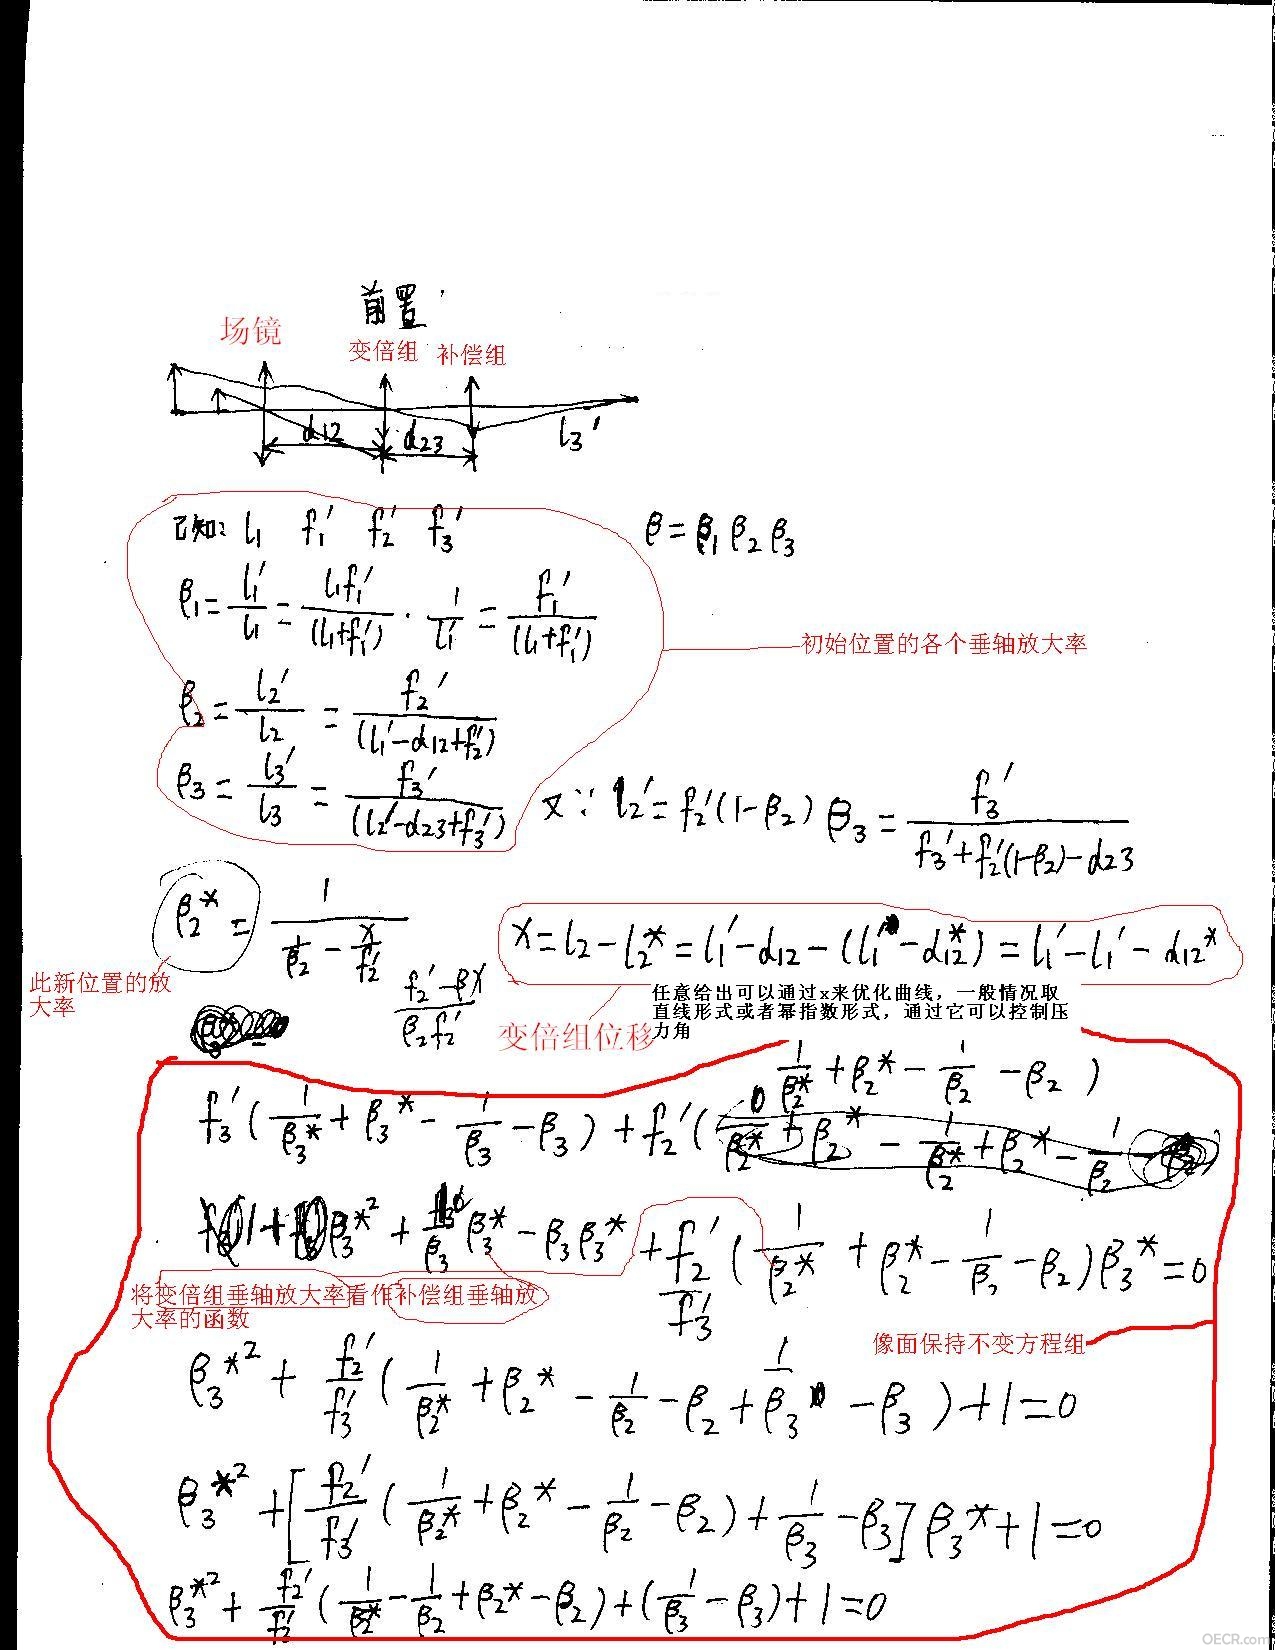 前置
场镜
变倍组 补偿组
d12 d23 l3'
已知: l1 f1' f2' f3' β=β1β2β3
β1=l1'/l1=l1f1'/(l1+f1')·1/l1=f1'/(l1+f1')
初始位置的各个垂轴放大率
β2=l2'/l2=f2'/(l1'-d12+f2')
β3=l3'/l3=f3'/(l2'-d23+f3') 又∵ l2'=f2'(1-β2) β3=f3'/(f3'+f2'(1-β2)-d23)
β2*=1/(1/β2-x/f2') x=l2-l2*=l1'-d12-(l1'-d12*)=l1'-l1'-d12*
此新位置的放
大率
(f2'-βx)/(β2f2')
任意给出可以通过x来优化曲线，一般情况取
直线形式或者幂指数形式，通过它可以控制压
力角
变倍组位移
1/β2*+β2*-1/β2-β2)
f3'(1/β3*+β3*-1/β3-β3)+f2'(
β3*²+ β3*-β3β3*+f2'/f3'(1/β2*+β2*-1/β2-β2)β3*=0
将变倍组垂轴放大率看作补偿组垂轴放
大率的函数
像面保持不变方程组
β3*²+f2'/f3'(1/β2*+β2*-1/β2-β2+1/β3-β3)+1=0
β3*²+[f2'/f3'(1/β2*+β2*-1/β2-β2)+1/β3-β3]β3*+1=0
β3*²+f2'/f3'(1/β2*-1/β2+β2*-β2)+(1/β3-β3)+1=0
OECR.com